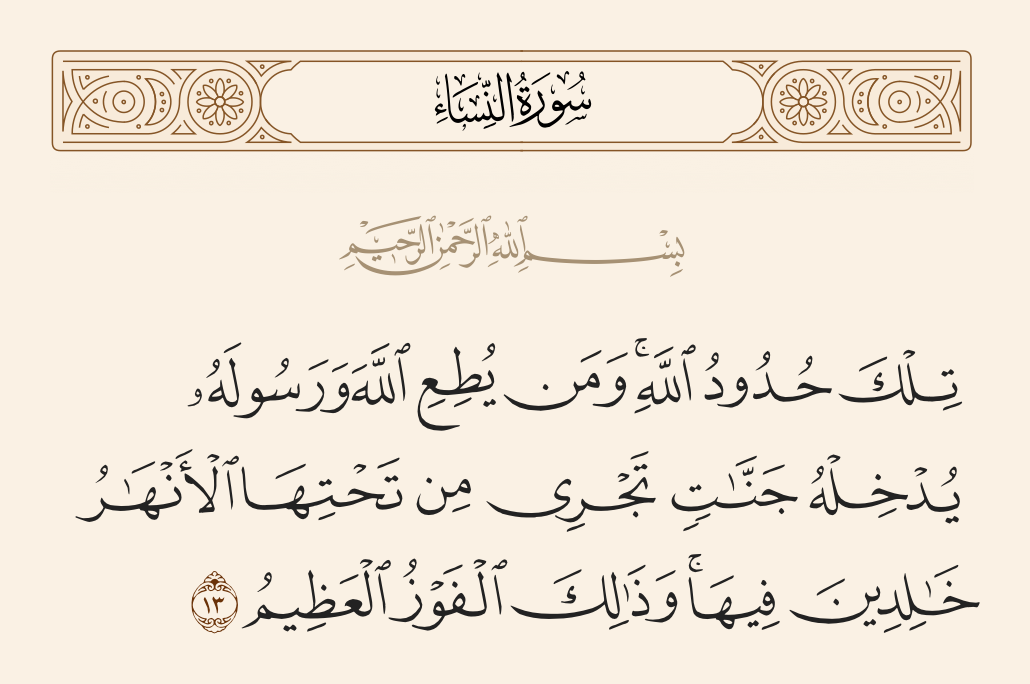 سُورَةُ النِّسَاءِ
بِسْمِ اللَّهِ الرَّحْمَٰنِ الرَّحِيمِ
تِلْكَ حُدُودُ ٱللَّهِۚ وَمَن يُطِعِ ٱللَّهَ وَرَسُولَهُۥ
يُدْخِلْهُ جَنَّٰتٍ تَجْرِى مِن تَحْتِهَا ٱلْأَنْهَٰرُ
خَٰلِدِينَ فِيهَاۚ وَذَٰلِكَ ٱلْفَوْزُ ٱلْعَظِيمُ ١٣